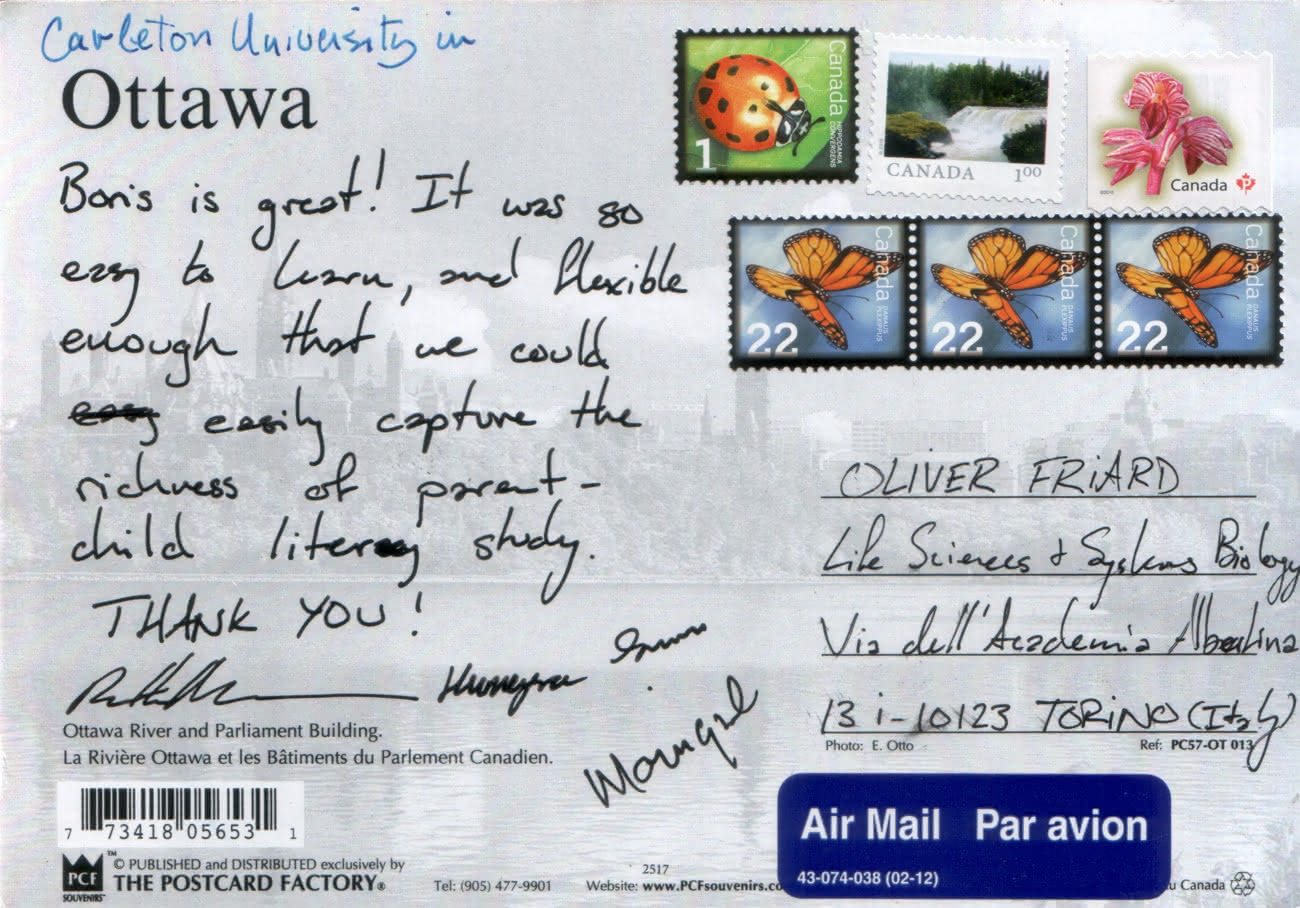 Carleton University in
Ottawa
Boris is great! It was so
easy to learn, and flexible
enough that we could
easy easily capture the
richness of parent-
child literacy study.
THANK YOU!
Ottawa River and Parliament Building.
La Rivière Ottawa et les Bâtiments du Parlement Canadien.
7 73418 05653 1
PCF
SOUVENIRS™
™ © PUBLISHED and DISTRIBUTED exclusively by
THE POSTCARD FACTORY®
Tel: (905) 477-9901
2517
Website: www.PCFsouvenirs.co
Canada
HIPPODAMIA
CONVERGENS
1
CANADA 100
Canada P
Canada
DANAUS
PLEXIPPUS
22
Canada
DANAUS
PLEXIPPUS
22
Canada
DANAUS
PLEXIPPUS
22
OLIVER FRIARD
Life Sciences & Systems Biology
Via dell'Accademia Albertina
13 i-10123 TORINO (Italy)
Photo: E. Otto
Ref: PC57-OT 013
Air Mail Par avion
43-074-038 (02-12)
u Canada